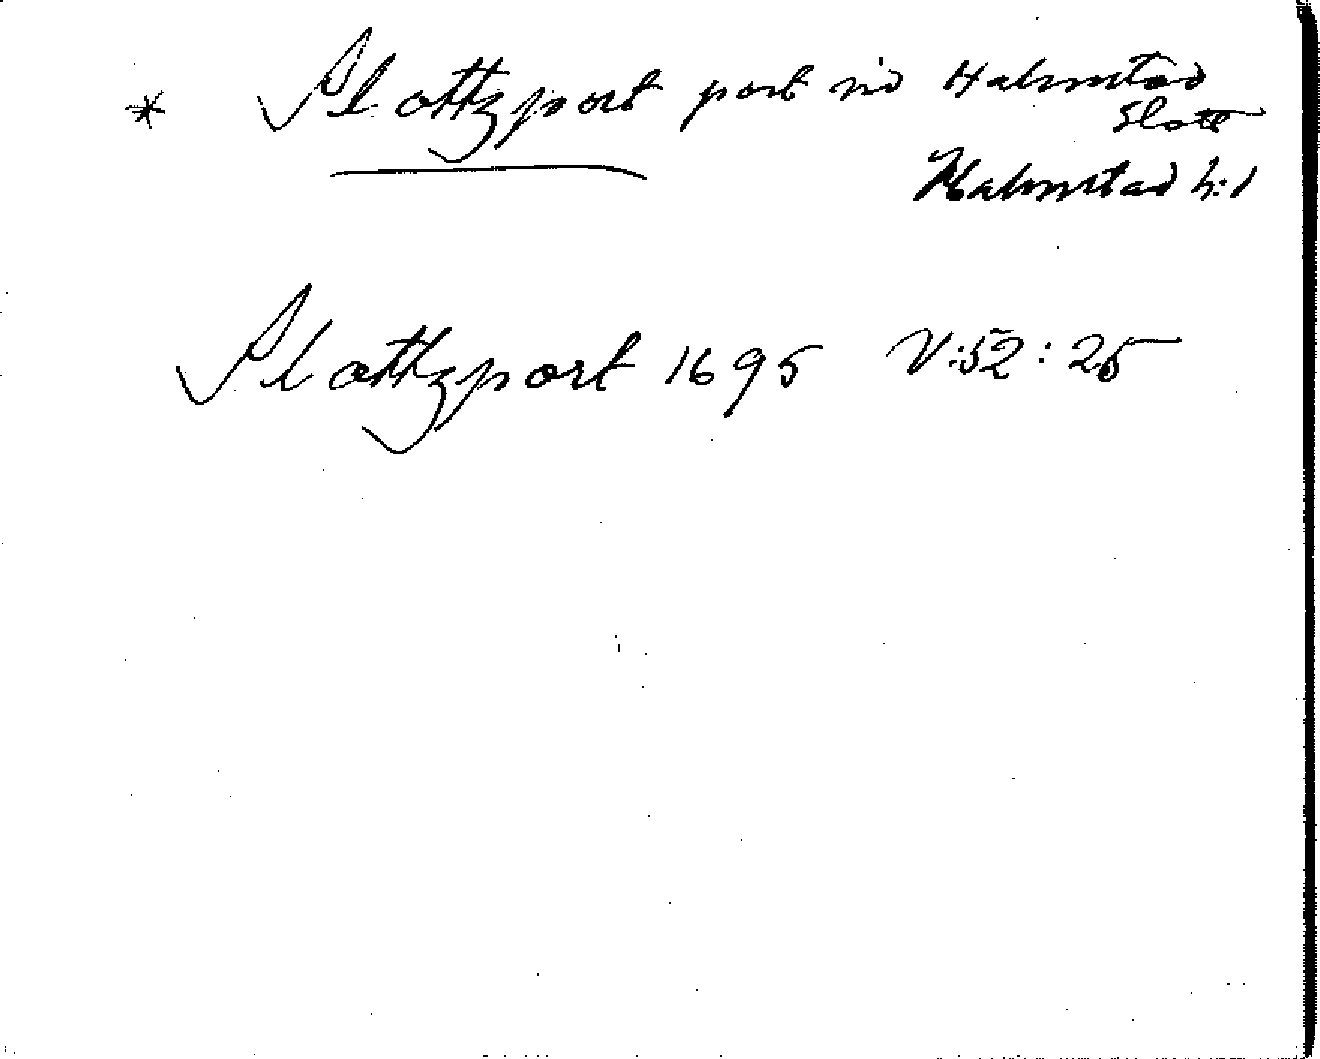 * Slottzport port vid Halmstad
Slott
Halmstad h:1
Slottzport 1695 V:52:25